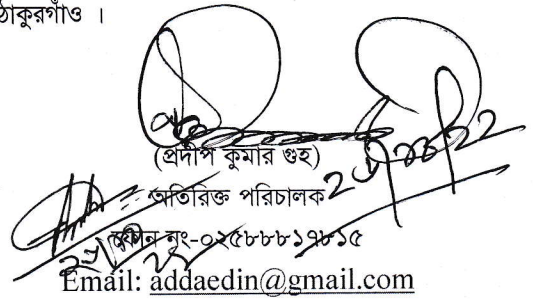 ঠাকুরগাঁও ।
(প্রদীপ কুমার গুহ)
অতিরিক্ত পরিচালক
ফোন নং-০২৫৮৮৮১৭৮১৫
Email: addaedin@gmail.com